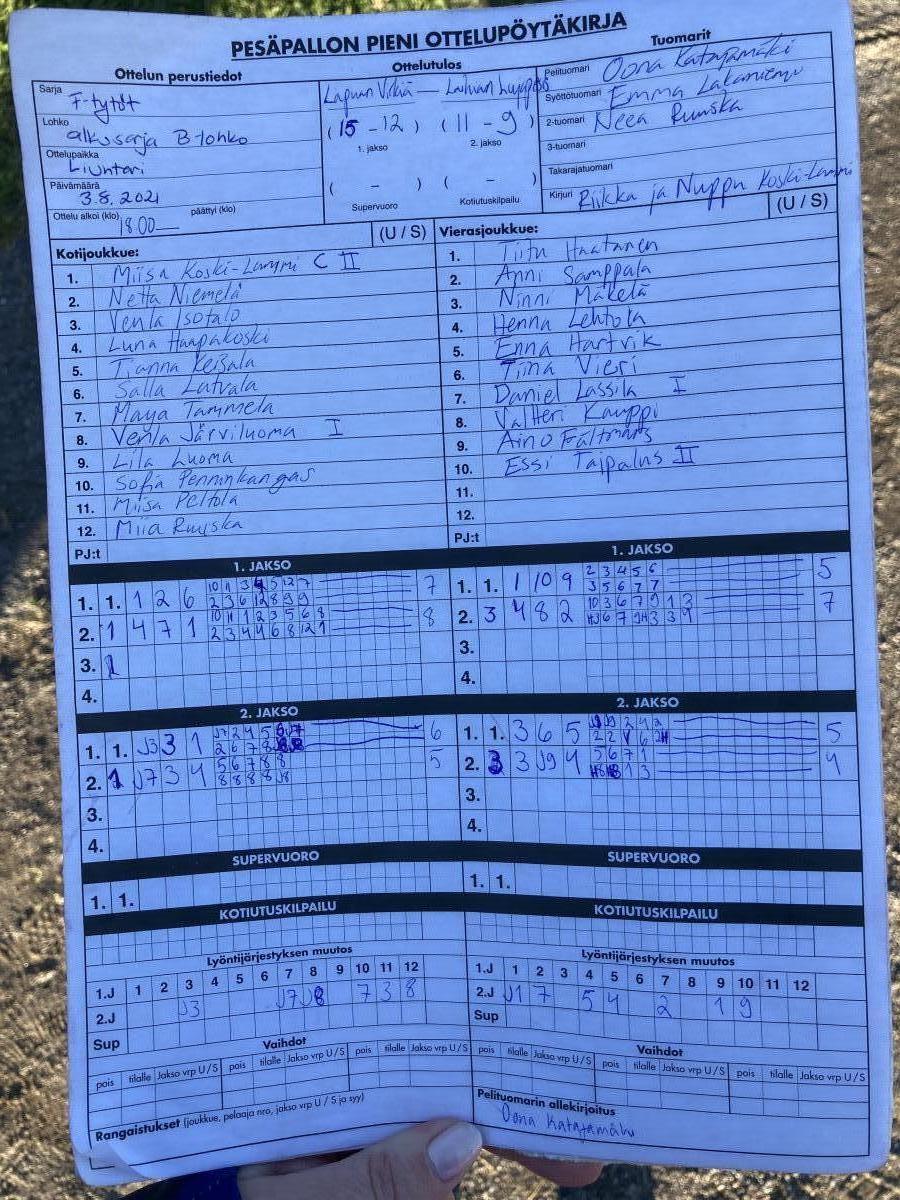 PESÄPALLON PIENI OTTELUPÖYTÄKIRJA
Ottelun perustiedot
Sarja F-tytöt
Lohko alkusarja B-lohko
Ottelupaikka Liuhtari
Päivämäärä 3.8.2021
Ottelu alkoi (klo) 18.00 päättyi (klo)
Ottelutulos
Lapuan Virkiä — Laihian Luja
(15 - 12) (11 - 9)
1. jakso 2. jakso
( - ) ( - )
Supervuoro Kotiutuskilpailu
Tuomarit
Pelituomari Oona Katajamäki
Syöttötuomari Emma
2-tuomari Neea Ruuska
3-tuomari
Takarajatuomari
Kirjuri Riikka ja Nuppu Koski-Lammi
Kotijoukkue: (U / S)
1. Miisa Koski-Lammi C II
2. Netta Niemelä
3. Venla Isotalo
4. Luna Haapakoski
5. Tianna Keisala
6. Salla Latvala
7. Maya Tammela
8. Venla Järviluoma I
9. Lila Luoma
10. Sofia Penninkangas
11. Miisa Peltola
12. Miia Ruuska
PJ:t
Vierasjoukkue: (U / S)
1. Tiitu Haatanen
2. Anni Samppala
3. Ninni Mäkelä
4. Henna Lehtola
5. Enna Hartvik
6. Tiina Vieri
7. Daniel Lassila I
8. Valtteri Kauppi
9. Aino Fältmars
10. Essi Taipalus II
11.
12.
PJ:t
1. JAKSO
1. 1. 1 2 6 7
2. 1 4 7 1 8
3.
4.
1. JAKSO
1. 1. 1 10 9 2 3 4 5 6 5
3 5 6 7 7
2. 3 4 8 2 7
3.
4.
2. JAKSO
1. 1. J3 3 1 6
2. 1 J7 3 4 5 6 7 8 8 5
8 8 8 8 J8
3.
4.
2. JAKSO
1. 1. 3 6 5 5
2. 3 3 J9 4 5 6 7 1 4
3.
4.
SUPERVUORO
1. 1.
SUPERVUORO
1. 1.
KOTIUTUSKILPAILU
KOTIUTUSKILPAILU
Lyöntijärjestyksen muutos
1.J 1 2 3 4 5 6 7 8 9 10 11 12
2.J J3 J7 J8 7 3 8
Sup
Lyöntijärjestyksen muutos
1.J 1 2 3 4 5 6 7 8 9 10 11 12
2.J J1 7 5 4 2 1 9
Sup
Vaihdot
pois tilalle Jakso vrp U / S pois tilalle Jakso vrp U / S pois tilalle Jakso vrp U / S
Vaihdot
pois tilalle Jakso vrp U / S pois tilalle Jakso vrp U / S pois tilalle Jakso vrp U / S
Rangaistukset (joukkue, pelaaja nro, jakso vrp U / S ja syy)
Pelituomarin allekirjoitus
Oona Katajamäki